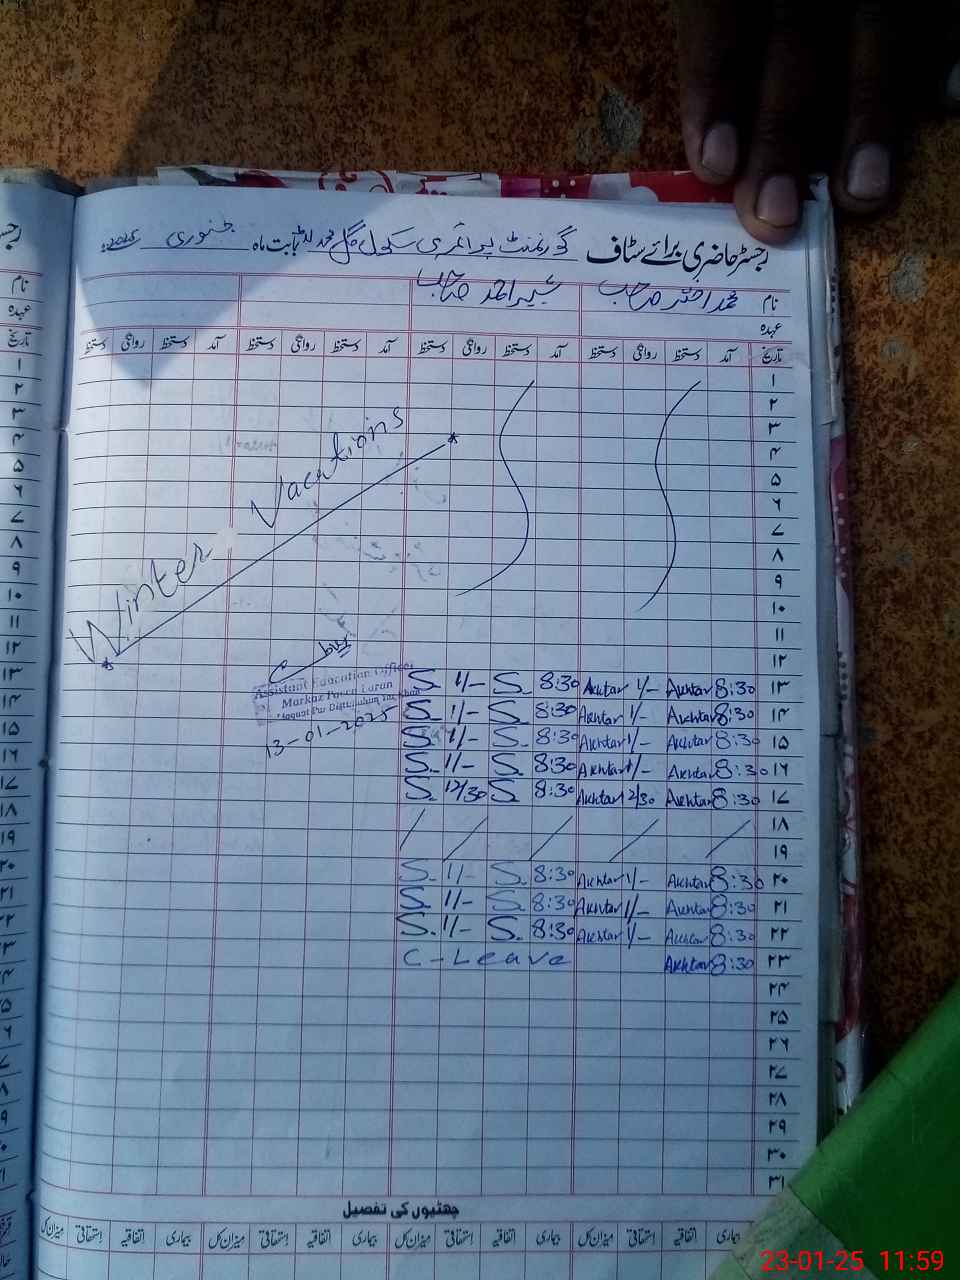 رجسٹر حاضری برائے سٹاف گورنمنٹ پرائمری سکول گل محمد بابت ماہ جنوری 2025ء
نام محمد اختر صاحب شبیر احمد صاحب
عہدہ
تاریخ آمد دستخط روانگی دستخط آمد دستخط روانگی دستخط آمد دستخط روانگی دستخط آمد دستخط روانگی دستخط
۱
۲
۳
۴
۵
۶
۷
۸
۹
۱۰
۱۱
۱۲
Winter Vacations
۱۳ 8:30 Akhtar 1/- Akhtar 8:30 S. 1/- S.
۱۴ 8:30 Akhtar 1/- Akhtar 8:30 S. 1/- S.
۱۵ 8:30 Akhtar 1/- Akhtar 8:30 S. 1/- S.
۱۶ 8:30 Akhtar 1/- Akhtar 8:30 S. 1/- S.
۱۷ 8:30 Akhtar 12/30 Akhtar 8:30 S. 12/30 S.
۱۸
۱۹
۲۰ 8:30 Akhtar 1/- Akhtar 8:30 S. 1/- S.
۲۱ 8:30 Akhtar 1/- Akhtar 8:30 S. 1/- S.
۲۲ 8:30 Akhtar 1/- Akhtar 8:30 S. 1/- S.
۲۳ 8:30 Akhtar C-Leave
۲۴
۲۵
۲۶
۲۷
۲۸
۲۹
۳۰
۳۱
Assistant Education Officer
Markaz
13-01-2025
چھٹیوں کی تفصیل
بیماری اتفاقیہ استحقاقی میزان کل بیماری اتفاقیہ استحقاقی میزان کل بیماری اتفاقیہ استحقاقی میزان کل بیماری اتفاقیہ استحقاقی میزان کل
23-01-25 11:59